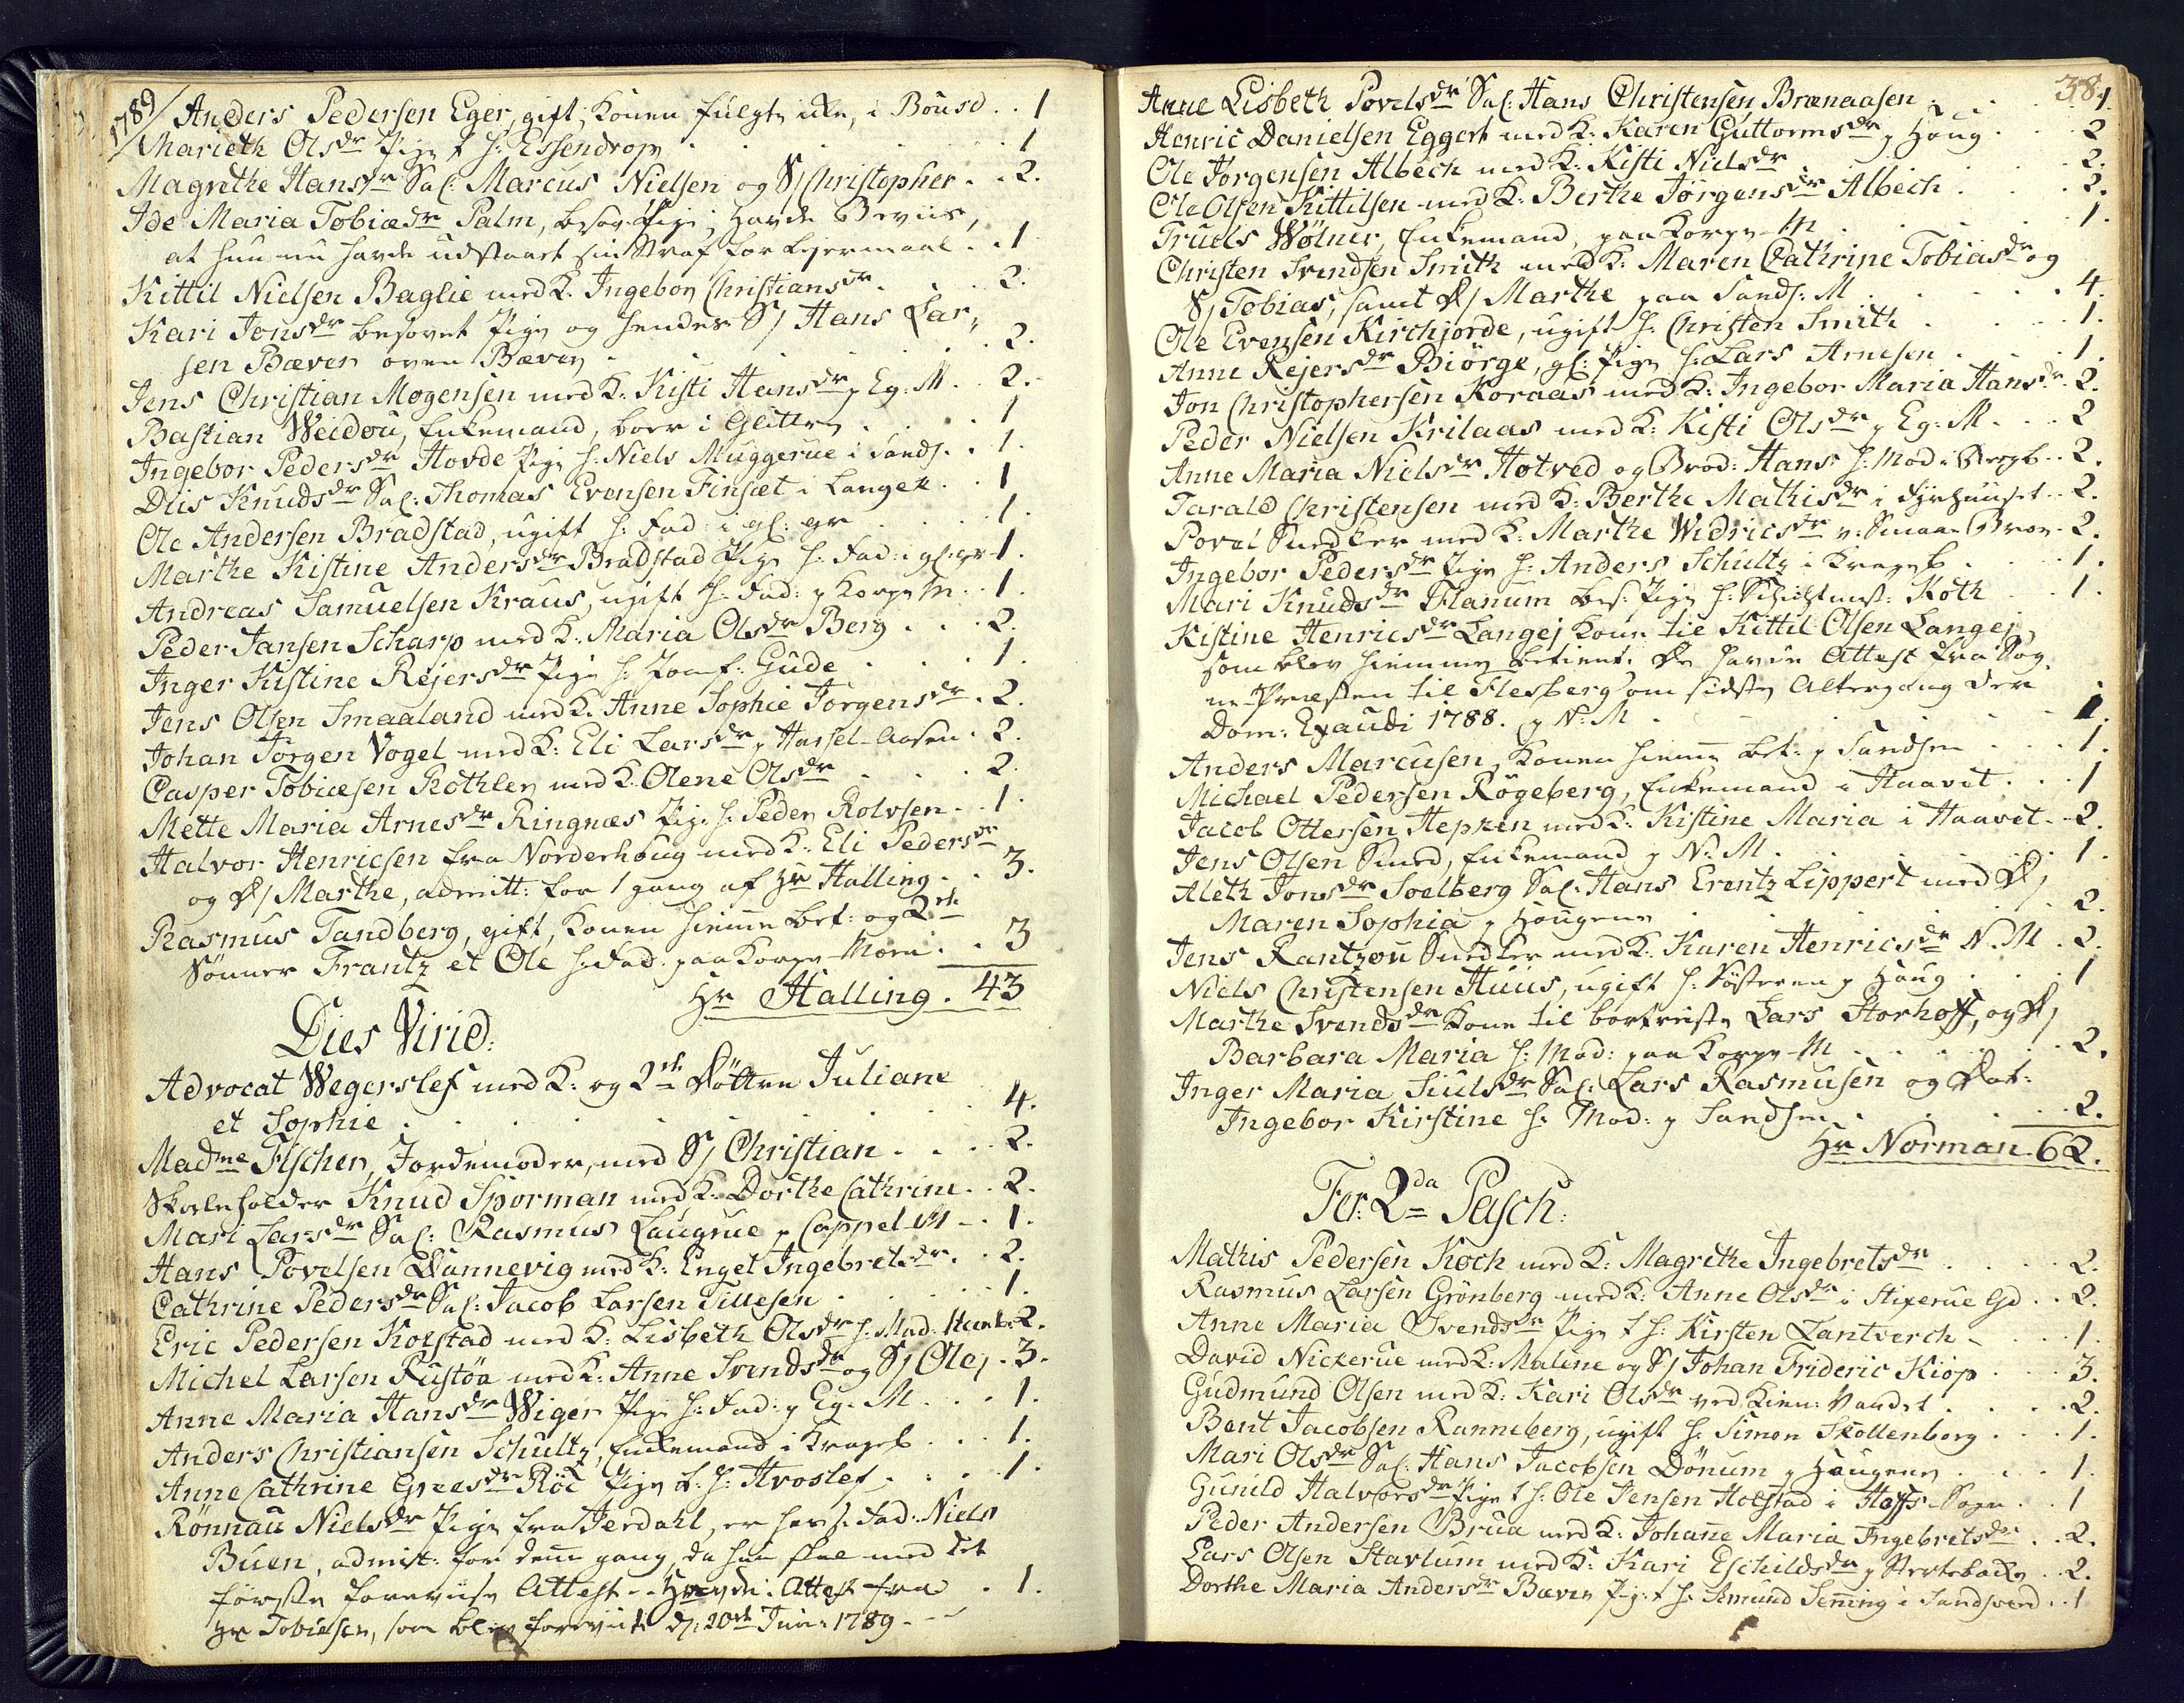 1789
Anders Pedersen Eger, gift, Konen fulgte ikke, i Bousd . . 1
Marieth Olsdr Pige t. h: Essendrop . . 1
Magrethe Hansdr Sal: Marcus Nielsen og S/ Christopher . . 2.
Ide Maria Tobiædr Palm, besov: Pige, havde Beviis,
at hun nu havde udstaaet sin Straf for Lejermaal . . 1
Kittil Nielsen Baglie med K. Ingebor Christiansdr . . 2.
Kari Jonsdr besovet Pige og hendes S/ Hans Lar,
sen Bæver oven Bæver . . 2.
Jens Christian Mogensen med K: Kisti Hansdr p Eg: M. . 2.
Bastian Weidou, Enkemand, boer i Glitter . . 1
Ingebor Pedersdr Hovde Pige h: Niels Muggerue i Sands. . 1.
Diis Knudsdr Sal: Thomas Evensen Finsæt i Langer . . 1
Ole Andersen Bradstad, ugift h: Fad: i gl: gr . . 1.
Marthe Kistine Andersdr Bradstad Pige h: Fad: i gl: gr 1.
Andreas Samuelsen Kraus, ugift h: Fad: p Korpe M . . 1.
Peder Jansen Scharp med K: Maria Olsdr Berg . . 2.
Inger Kistine Rejersdr Pige h: Jomf: Gude . . 1.
Jens Olsen Smaaland med K. Anne Sophie Jorgensdr . 2.
Johan Jørgen Vogel med K: Eli Larsdr p Hassel-Aasen . 2.
Casper Tobiæsen Rothler med K. Olene Olsdr . . 2.
Mette Maria Arnesdr Ringnæs Pige h: Peder Rolvsen . . 1.
Halvor Henricsen fra Norderhoug med K: Eli Pedersdr
og D/ Marthe, admitt: for 1 gang af Hr Halling . . 3.
Rasmus Tandberg, gift, Konen hieme bet: og 2de
Sønner Frantz et Ole h. Fad. paa Korpe Moen . . 3
Hr Halling . 43
Dies Virid:
Advocat Wegerslef med K: og 2de Døttre Juliane
et Sophie . . 4.
Madme Fischer, Jordemoder, med S/ Christian . . 2.
Skoleholder Knud Sporman med K. Dorthe Cathrine . . 2.
Mari Larsdr Sal: Rasmus Laugrue p Cappel-M - . 1.
Hans Povelsen Dannevig med K: Engel Ingebretsdr . . 2.
Cathrine Pedersdr Sal: Jacob Larsen Tillesen . . 1.
Eric Pedersen Kolstad med K: Lisbeth Olsdr h: Mad: 2.
Michel Larsen Rustøa med K: Anne Svendsdr og S/ Ole . 3.
Anne Maria Hansdr Wiger Pige h: Fad: p Eg. M . . 1.
Anders Christiansen Schultz, Enkemand i Krageb . . 1.
Anne Cathrine Greesdr Röe Pige t. h: Hvoslef . . 1.
Rönnau Nielsdr Pige fra Jerdahl, er her h. Fad: Niels
Buen, admit: for denne gang, da hun skal med det
første foreviise Attest - - Attest fra . 1.
Hr Tobiesen, som blev foreviist d: 20de Juni 1789 - -
38.
Anne Lisbeth Povelsdr Sal: Hans Christensen Brænaasen . . 1.
Henric Danielsen Eggert med K: Karen Guttormsdr p Houg . . 2
Ole Jörgensen Albech med K: Kisti Nielsdr . . 2.
Ole Olsen Kittilsen med K: Berthe Jørgensdr Albech . . 2.
Truels Wølner, Enkemand, paa Korpe-M . . 1.
Christen Svendsen Smith med K: Maren Cathrine Tobiasdr og
S/ Tobias, samt D/ Marthe paa Sands: M . . 4.
Ole Evensen Kirchjorde, ugift h: Christen Smith . . 1.
Anne Rejersdr Biörge, gl: Pige h: Lars Arnesen . . 1.
Jon Christophersen Koraas med K: Ingebor Maria Hansdr . 2.
Peder Nielsen Krilaas med K: Kisti Olsdr p Eg: M . . 2
Anne Maria Nielsdr Hotved og Brod: Hans h: Mod: i Bergb . . 2.
Tarald Christensen med K: Berthe Mathisdr i Fyrhuuset . . 2.
Povel Snedker med K: Marthe Widricsdr v: Smaae Broe . 2.
Ingebor Pedersdr Pige h: Anders Schultz i Krageb . . 1.
Mari Knudsdr Flanum bes: Pige h: Schichtmst: Roth . . 1.
Kistine Henricsdr Langej Kone til Kittil Olsen Langej,
som blev hiemme betient. De havde Attest fra Sog,
ne-Præsten til Flesberg om sidste Altergang der
Dom: Exaudi 1788. p N: M . . 1.
Anders Marcusen, Konen hieme bet: p Sandsm . . 1.
Michael Pedersen Rögeberg, Enkemand i Haavet . . 1
Jacob Ottersen Hepken med K: Kistine Maria i Haavet . . 2.
Jens Olsen Smed, Enkemand p N: M . . 1.
Aleth Jonsdr Soelberg Sal: Hans Erentz Lippert med D/
Maren Sophia p Hougene . . 2.
Jens Rantzou Snedker med K: Karen Henricsdr N. M . 2.
Niels Christensen Huus, ugift h: Søsteren p Houg . . 1
Marthe Svendsdr Kone til bortreiste Lars Storhoff, og D/
Barbara Maria h: Mod: paa Korpe-M . . 2.
Inger Maria Siulsdr Sal: Lars Rasmusen og Dat:
Ingebor Kirstine h: Mod: p Sandsm . . 2.
Hr Norman 62.
Fer: 2da Pasch:
Mathis Pedersen Koch med K: Magrethe Ingebretsdr . . 2.
Rasmus Larsen Grönberg med K: Anne Olsdr i Hixerue Gd . . 2.
Anne Maria Svendsdr Pige t h: Kirsten Lantverch - . . 1.
David Nickerue med K: Malene og S/ Johan Frideric Kiöp . . 3.
Gudmund Olsen med K: Kari Olsdr ved Kien: Vandet . . 2.
Bent Jacobsen Ranneberg, ugift h: Simen Skollenborg . . 1.
Mari Olsdr Sal: Hans Jacobsen Dönum p Hougene . . 1.
Gunild Halvorsdr Pige t h: Ole Jensen Holstad i Hoffs-Sogn . . 1
Peder Andersen Brua med K: Johane Maria Ingebretsdr . . 2.
Lars Olsen Stavlum med K: Kari Eschildsdr p Stertebacke . . 2.
Dorthe Maria Andersdr Bæver Pig: t h: Amund Senning i Sandsverd . . 1